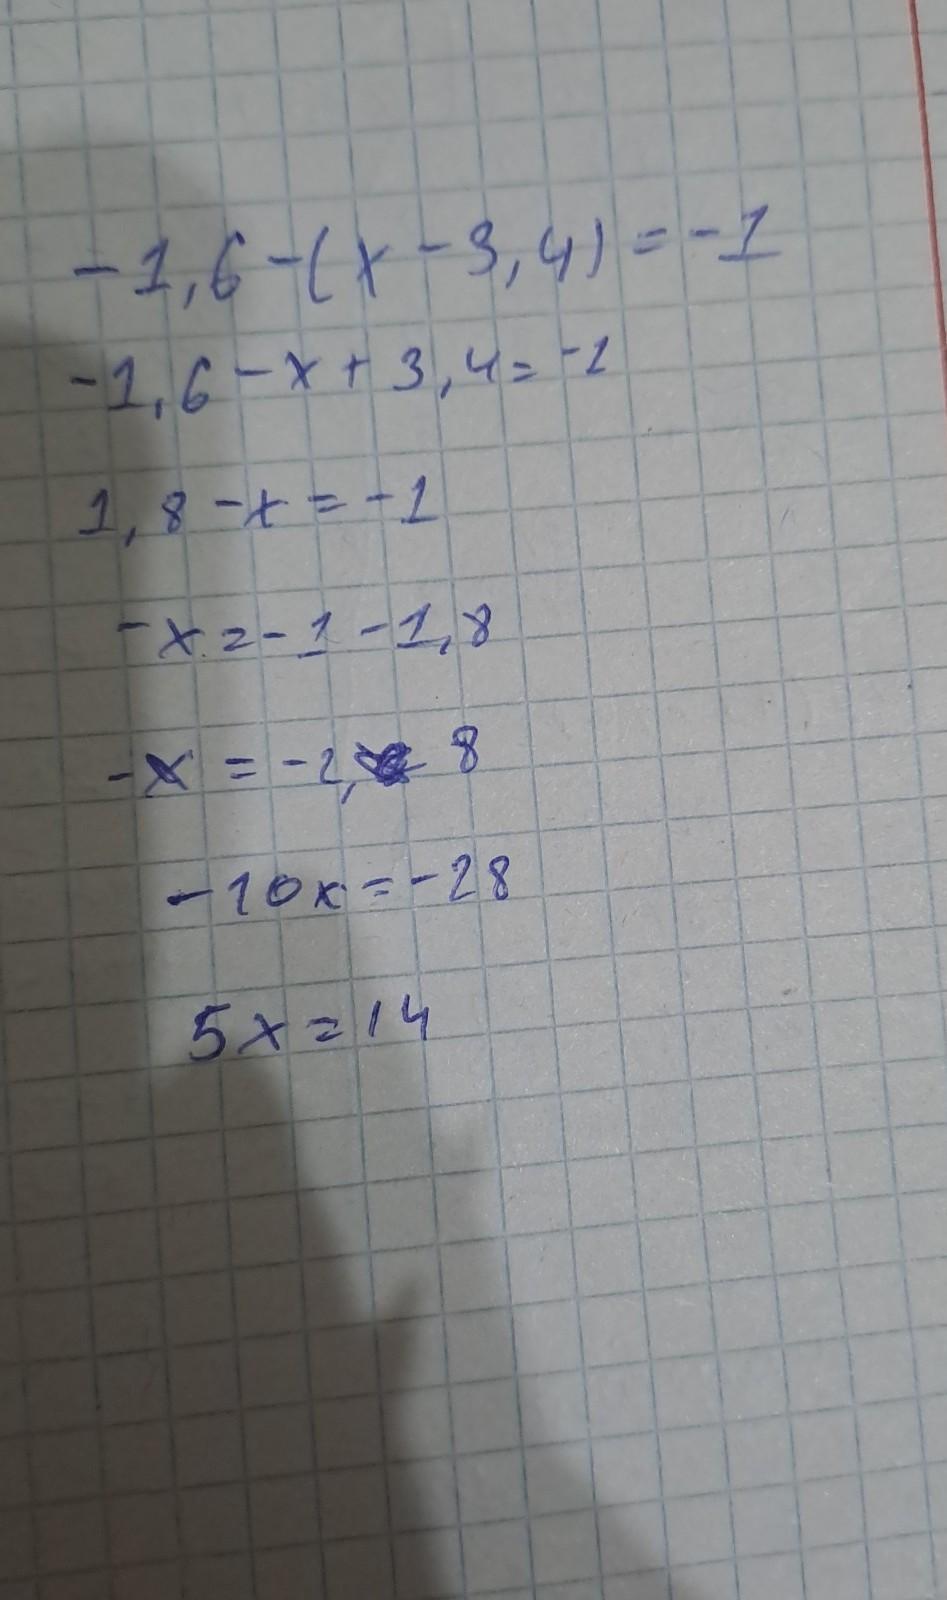 -1,6-(x-3,4)=-1
-1,6-x+3,4=-1
1,8-x=-1
-x=-1-1,8
-x=-2,8
-10x=-28
5x=14